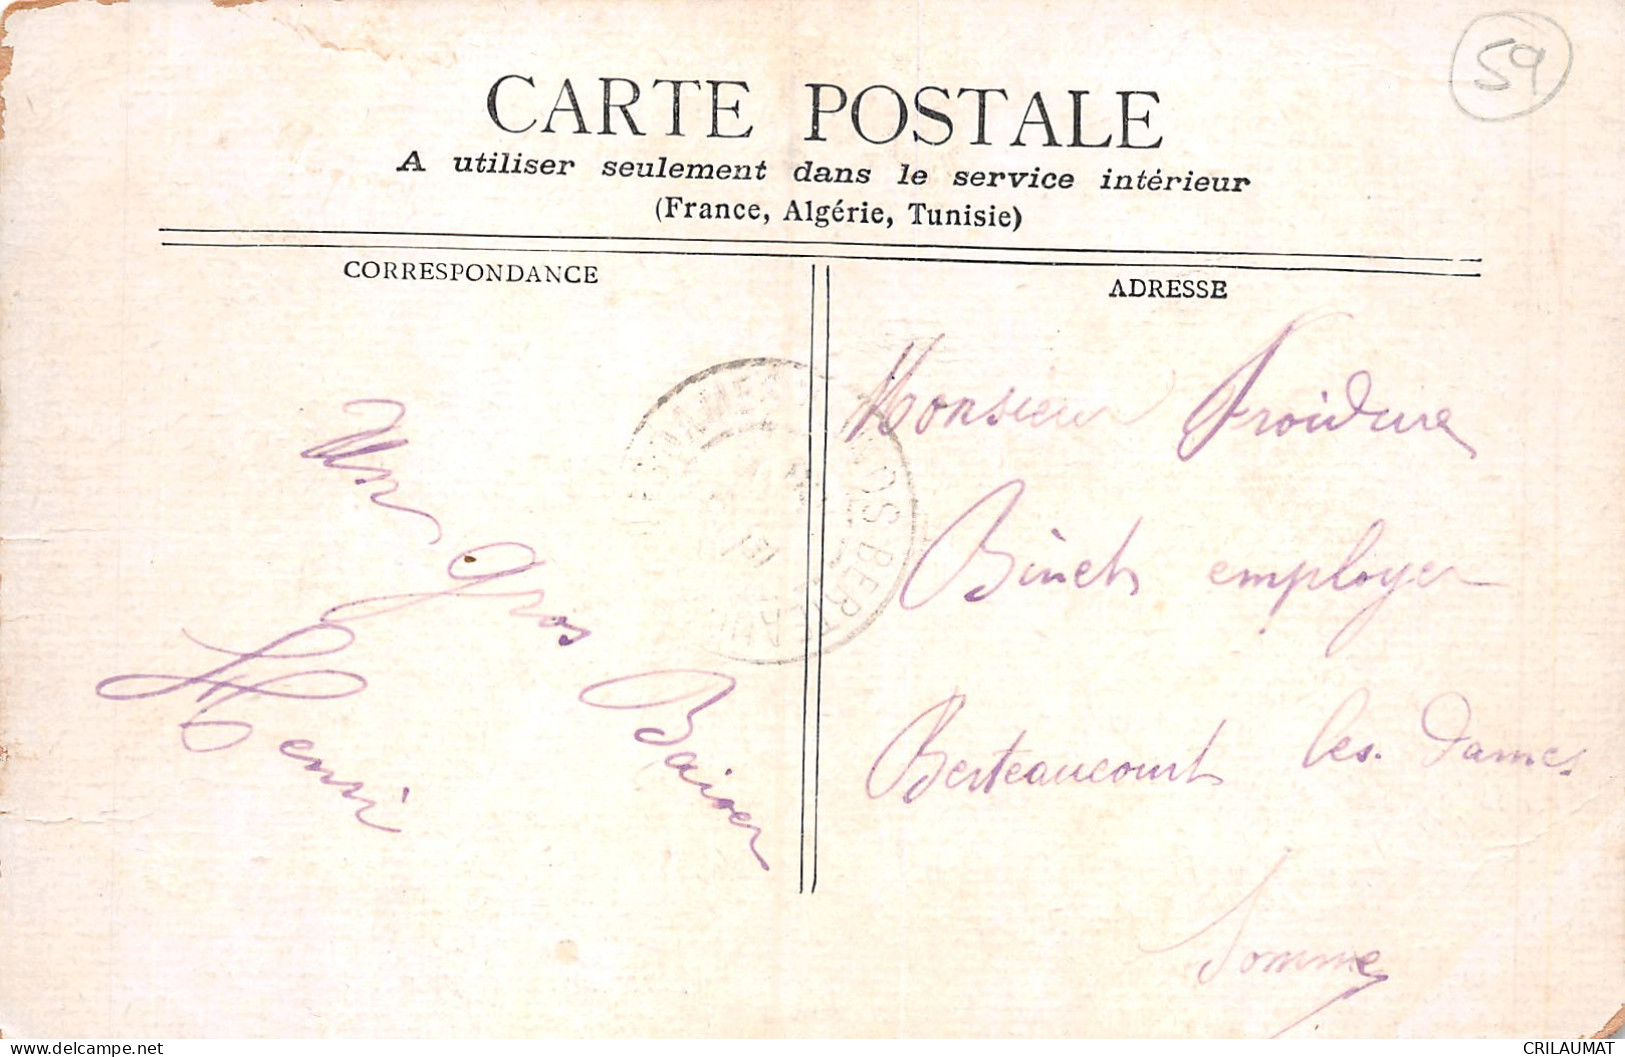 59
CARTE POSTALE
A utiliser seulement dans le service intérieur
(France, Algérie, Tunisie)
CORRESPONDANCE
ADRESSE
Un gros Baiser
Henri
Monsieur Froidure
Binet employer
Berteaucourt les. Dames
Somme
BERTEAU
delcampe.net
CRILAUMAT